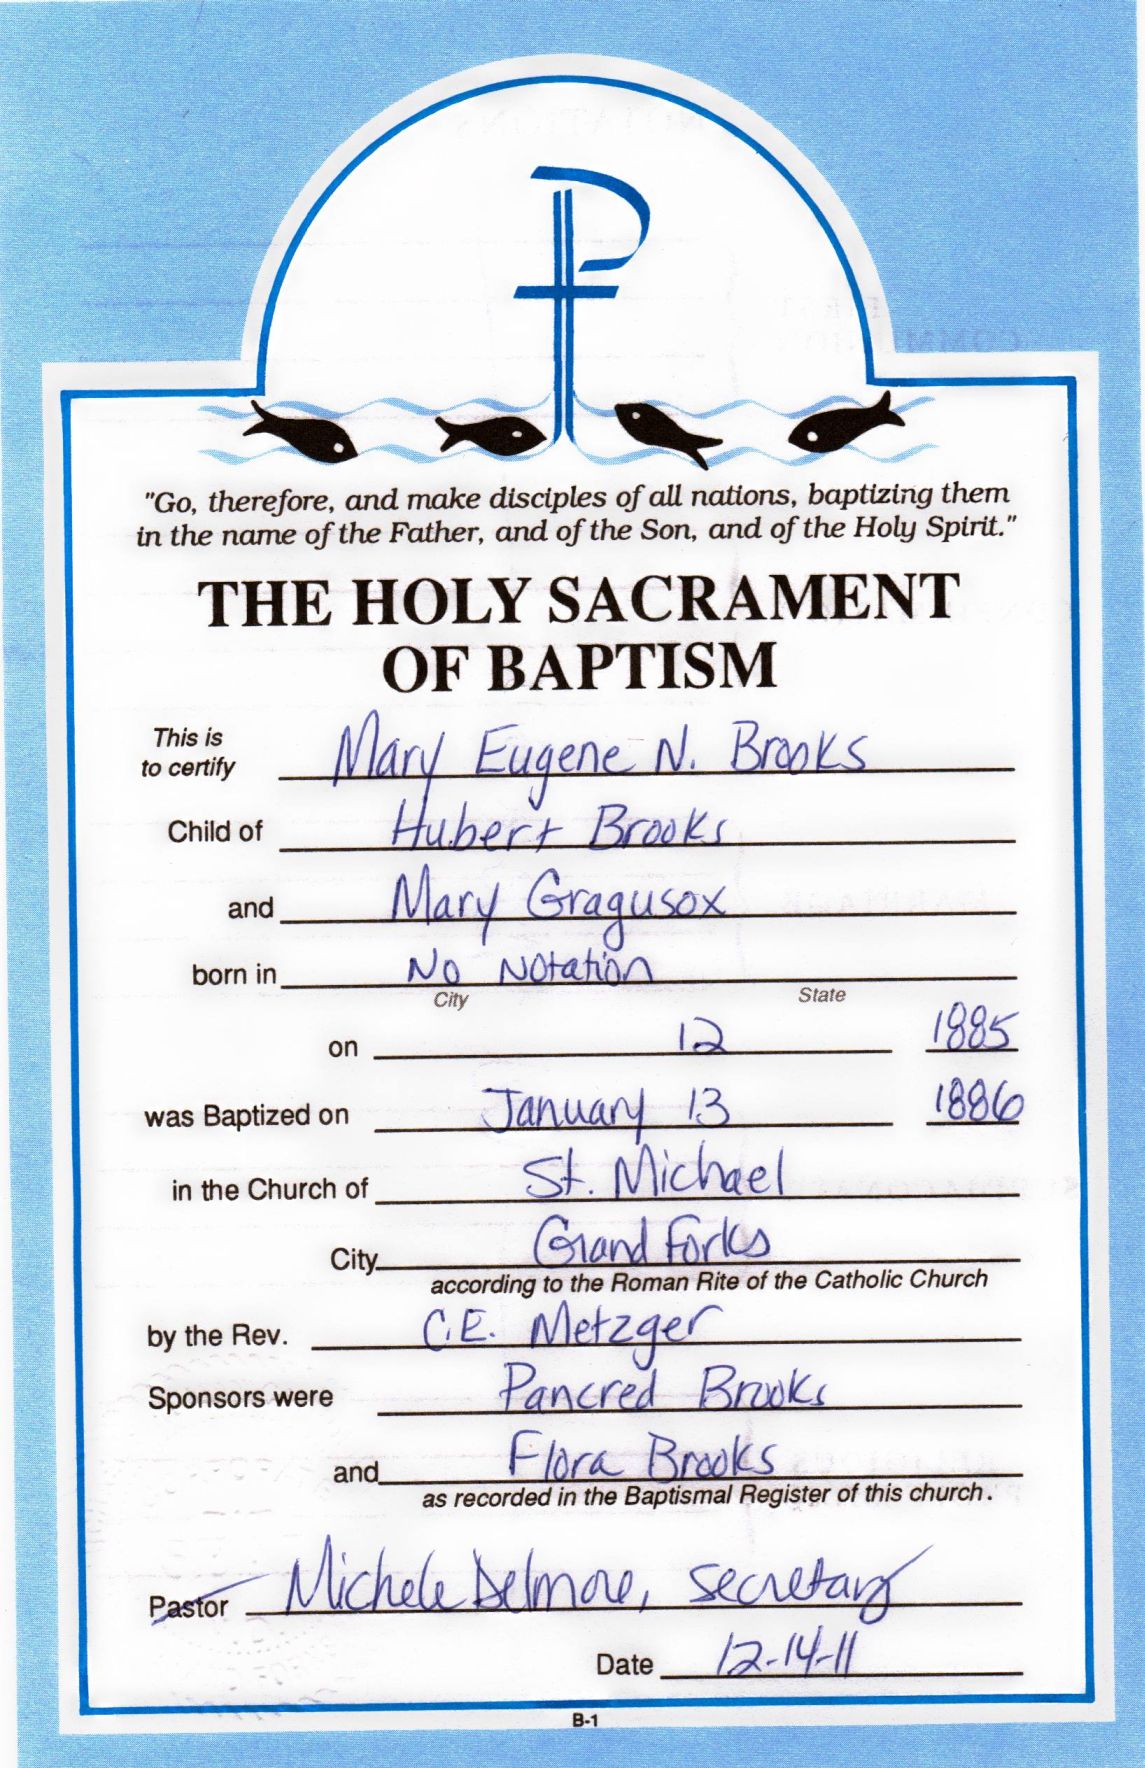 "Go, therefore, and make disciples of all nations, baptizing them
in the name of the Father, and of the Son, and of the Holy Spirit."
THE HOLY SACRAMENT
OF BAPTISM
This is
to certify Mary Eugene N. Brooks
Child of Hubert Brooks
and Mary Gragusox
born in No Notation
City State
on 12 1885
was Baptized on January 13 1886
in the Church of St. Michael
City Grand Forks
according to the Roman Rite of the Catholic Church
by the Rev. C.E. Metzger
Sponsors were Pancred Brooks
and Flora Brooks
as recorded in the Baptismal Register of this church.
Pastor Michele Delmore, secretary
Date 12-14-11
B-1